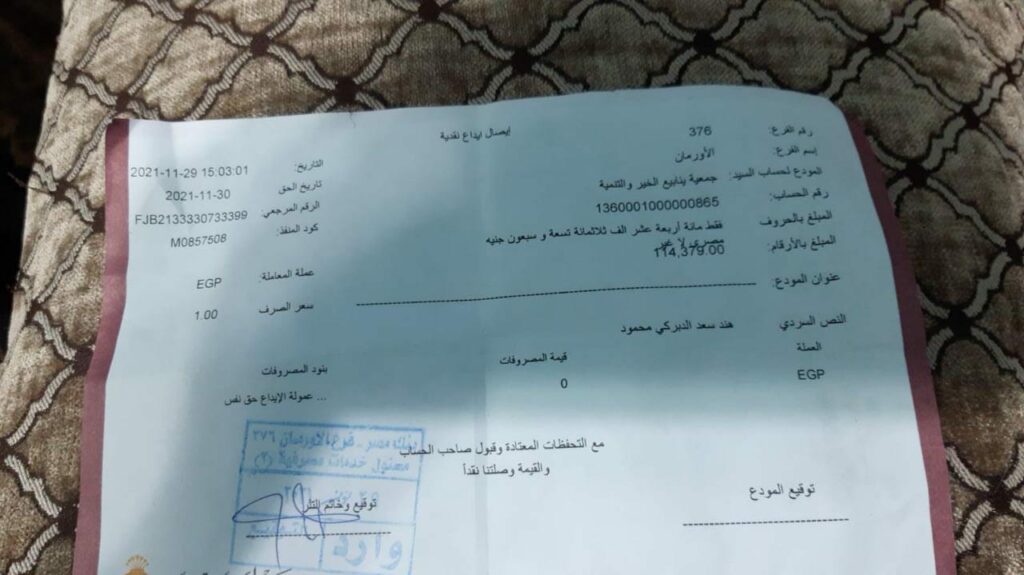 إيصال ايداع نقدية
رقم الفرع: 376
إسم الفرع: الأورمان
المودع لحساب السيد: جمعية ينابيع الخير والتنمية
رقم الحساب: 1360001000000865
المبلغ بالحروف فقط مائة أربعة عشر الف ثلاثمائة تسعة و سبعون جنيه
مصري لا غير
المبلغ بالأرقام: 114,379.00
عنوان المودع:
التاريخ: 2021-11-29 15:03:01
تاريخ الحق 2021-11-30
الرقم المرجعي: FJB2133330733399
كود المنفذ: M0857508
عملة المعاملة: EGP
سعر الصرف 1.00
النص السردي هند سعد الديركي محمود
العملة قيمة المصروفات بنود المصروفات
EGP 0 عمولة الإيداع حق نفس ...
مع التحفظات المعتادة وقبول صاحب الحساب
والقيمة وصلتنا نقداً
توقيع المودع
توقيع وخاتم
بنك مصر - فرع الاورمان ٣٧٦
مسئول خدمات مصرفية (٢)
وارد